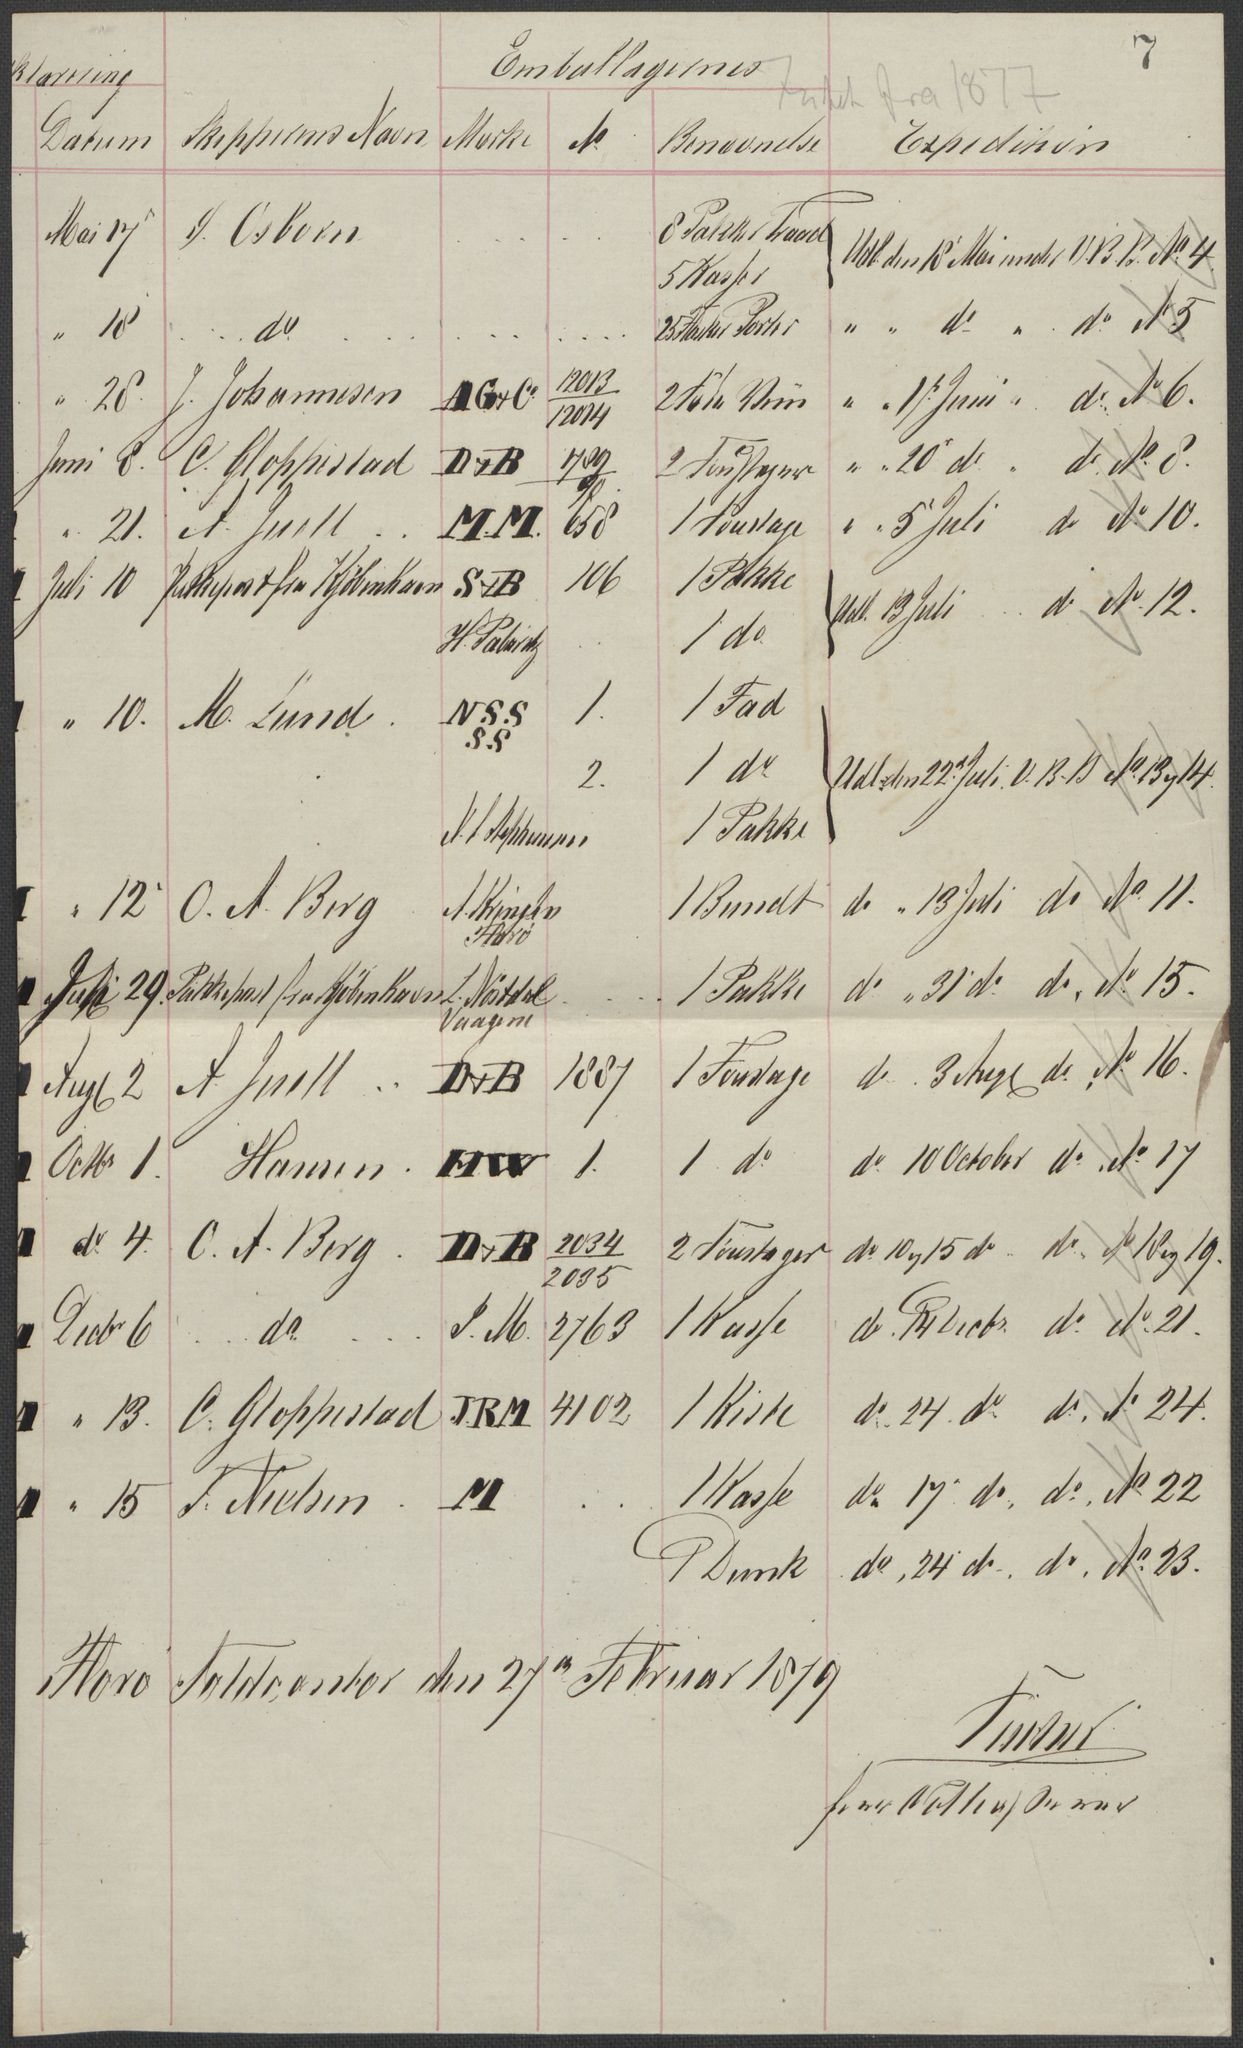 7
klarering Emballagernes
fra 1877
Datum Skippernes Navn Mærke No Benævnelse Expedition
Mai 17 S. Osborn . . . . . 8 Pakker Traad
5 Kasser Udl. den 18 Mai under V.B.B. No. 4.
" 18 . . do . . . . . . . . 25 Porter " " do " do No 5
" 28. J. Johannesen AG&Co 12013 2 Fade Viin " " 1st Juni " do. No 6.
12014
Juni 8. C. Gloppestad D&B 1789 2 Foustager " " 20 do " do. No. 8.
90.
" 21. A. Juell . . M.M. 658 1 Foustage " " 5 Juli do No 10.
Juli 10 Pakkepost fra Kjöbenhavn S&B 106 1 Pakke
Udl. 13 Juli . . do No. 12.
H. . 1 do
" 10. M. Lund . N S.S 1. 1 Fad
S.S
2. 1 do Udl. den 22d Juli. V. B. B No. 13 og 14.
1 Pakke
" 12 O. A. Berg A. 1 Bundt do " 13 Juli do No. 11.
Florö
Juli 29. Pakkepost fra Kjöbenhavn L. Nöstdal . . . 1 Pakke do " 31 do do, No 15.
Vaagene
Augt 2 A. Juell . . D&B 1887 1 Foustage do . 3 Augt do, No 16.
Octbr 1. Hansen . HW 1. 1 do do 10 October do, No 17
do 4. O. A. Berg . D&B 2034 2 Foustager do 10 og 15 do do. No 18 og 19.
2035
Decbr 6 . . do . . . J. M. 2763 1 Kasse do Decbr. do. No. 21.
" 13. C. Gloppestad J.R.M 4102 1 Kiste do. 24 do do. No 24.
" 15 T. Nielsen . M . . 1 Kasse do 17 do, do, No 22
1 Dunk do, 24 do, do, No. 23.
Florö Toldcontor den 27de Februar 1879